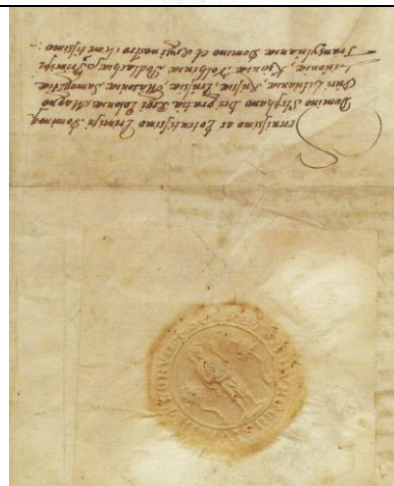 Serenissimo ac Potentissimo Principi Domino
Domino Stephano Dei gratia Regi Poloniæ Magno
Duci Lithuaniæ, Russiæ, Prussiæ, Masouiæ Samogitiæ
Liuoniæ, Kyouiæ Volhyniæ Podlachiæq, Principi
Transyluaniæ Domino et Regi nostro clementissimo: